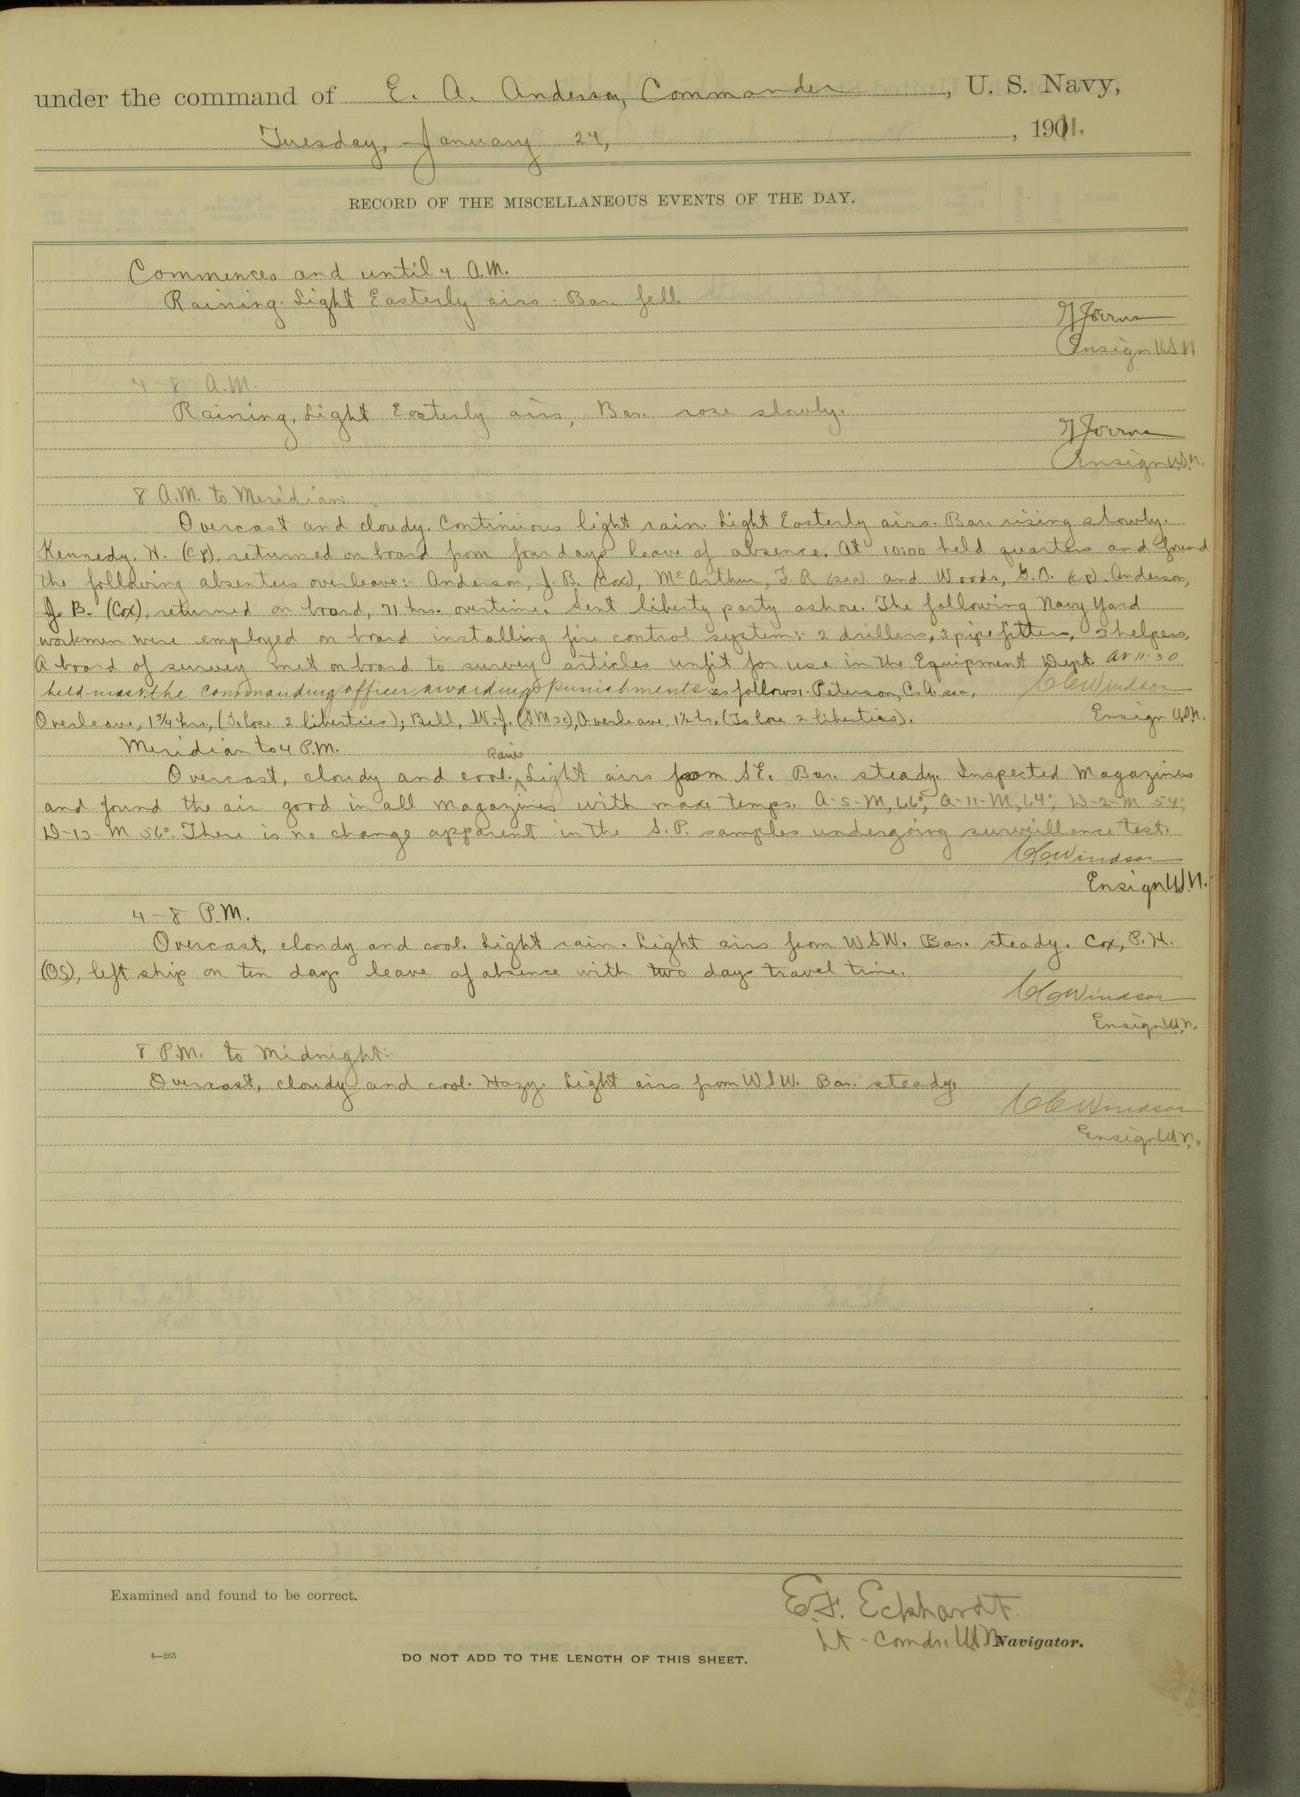 under the command of E. A. Anderson, Commander, U. S. Navy,
Tuesday, January 24, 1911.
RECORD OF THE MISCELLANEOUS EVENTS OF THE DAY.
Commences and until 4 A.M.
Raining. Light Easterly airs. Bar. fell.
Ensign USN
4-8 A.M.
Raining, Light Easterly airs, Bar. rose slowly.
Ensign U.S.N.
8 A.M. to Meridian:
Overcast and cloudy. Continuous light rain. Light Easterly airs. Bar. rising slowly.
Kennedy, H. (CP). returned on board from four days leave of absence. At 10:00 held quarters and found
the following absentees overleave:- Anderson, J. B. (Cox), McArthur, F. R (sea) and Woods, G. O. (CP). Anderson,
J. B. (Cox), returned on board, 71 hrs. overtime. Sent liberty party ashore. The following Navy Yard
workmen were employed on board installing fire control system:- 2 drillers, 3 pipefitters, 2 helpers,
A board of survey met on board to survey articles unfit for use in the Equipment Dept. At 11:30
held mast, the commanding officer awarding punishments as follows:- Peterson, C. A. sea, CC Windsor
Overleave, 1 3/4 hrs, (To lose 2 liberties); Bell, W. J. (SM2c), Overleave 1 1/2 hr. (To lose 2 liberties). Ensign USN.
Meridian to 4 P.M.
Rain
Overcast, cloudy and cool. Light airs from SE. Bar. steady. Inspected Magazines
and found the air good in all magazines with max temps. A-5-M, 66°, A-11-M, 64°; D-2-M 54°;
D-12-M 56°. There is no change apparent in the S. P. samples undergoing surveillance test.
CC Windsor
Ensign U.S.N.
4-8 P.M.
Overcast, cloudy and cool. Light rain. Light airs from WSW. Bar. steady. Cox, P. H.
(OS), left ship on ten days leave of absence with two days travel time.
CC Windsor
Ensign U.S.N.
8 P.M. to Midnight:
Overcast, cloudy and cool. Hazy. Light airs from WSW. Bar. steady.
CC Windsor
Ensign U.S.N.
Examined and found to be correct.
E.F. Eckhardt
Lt-Comdr. USN Navigator.
4—265
DO NOT ADD TO THE LENGTH OF THIS SHEET.